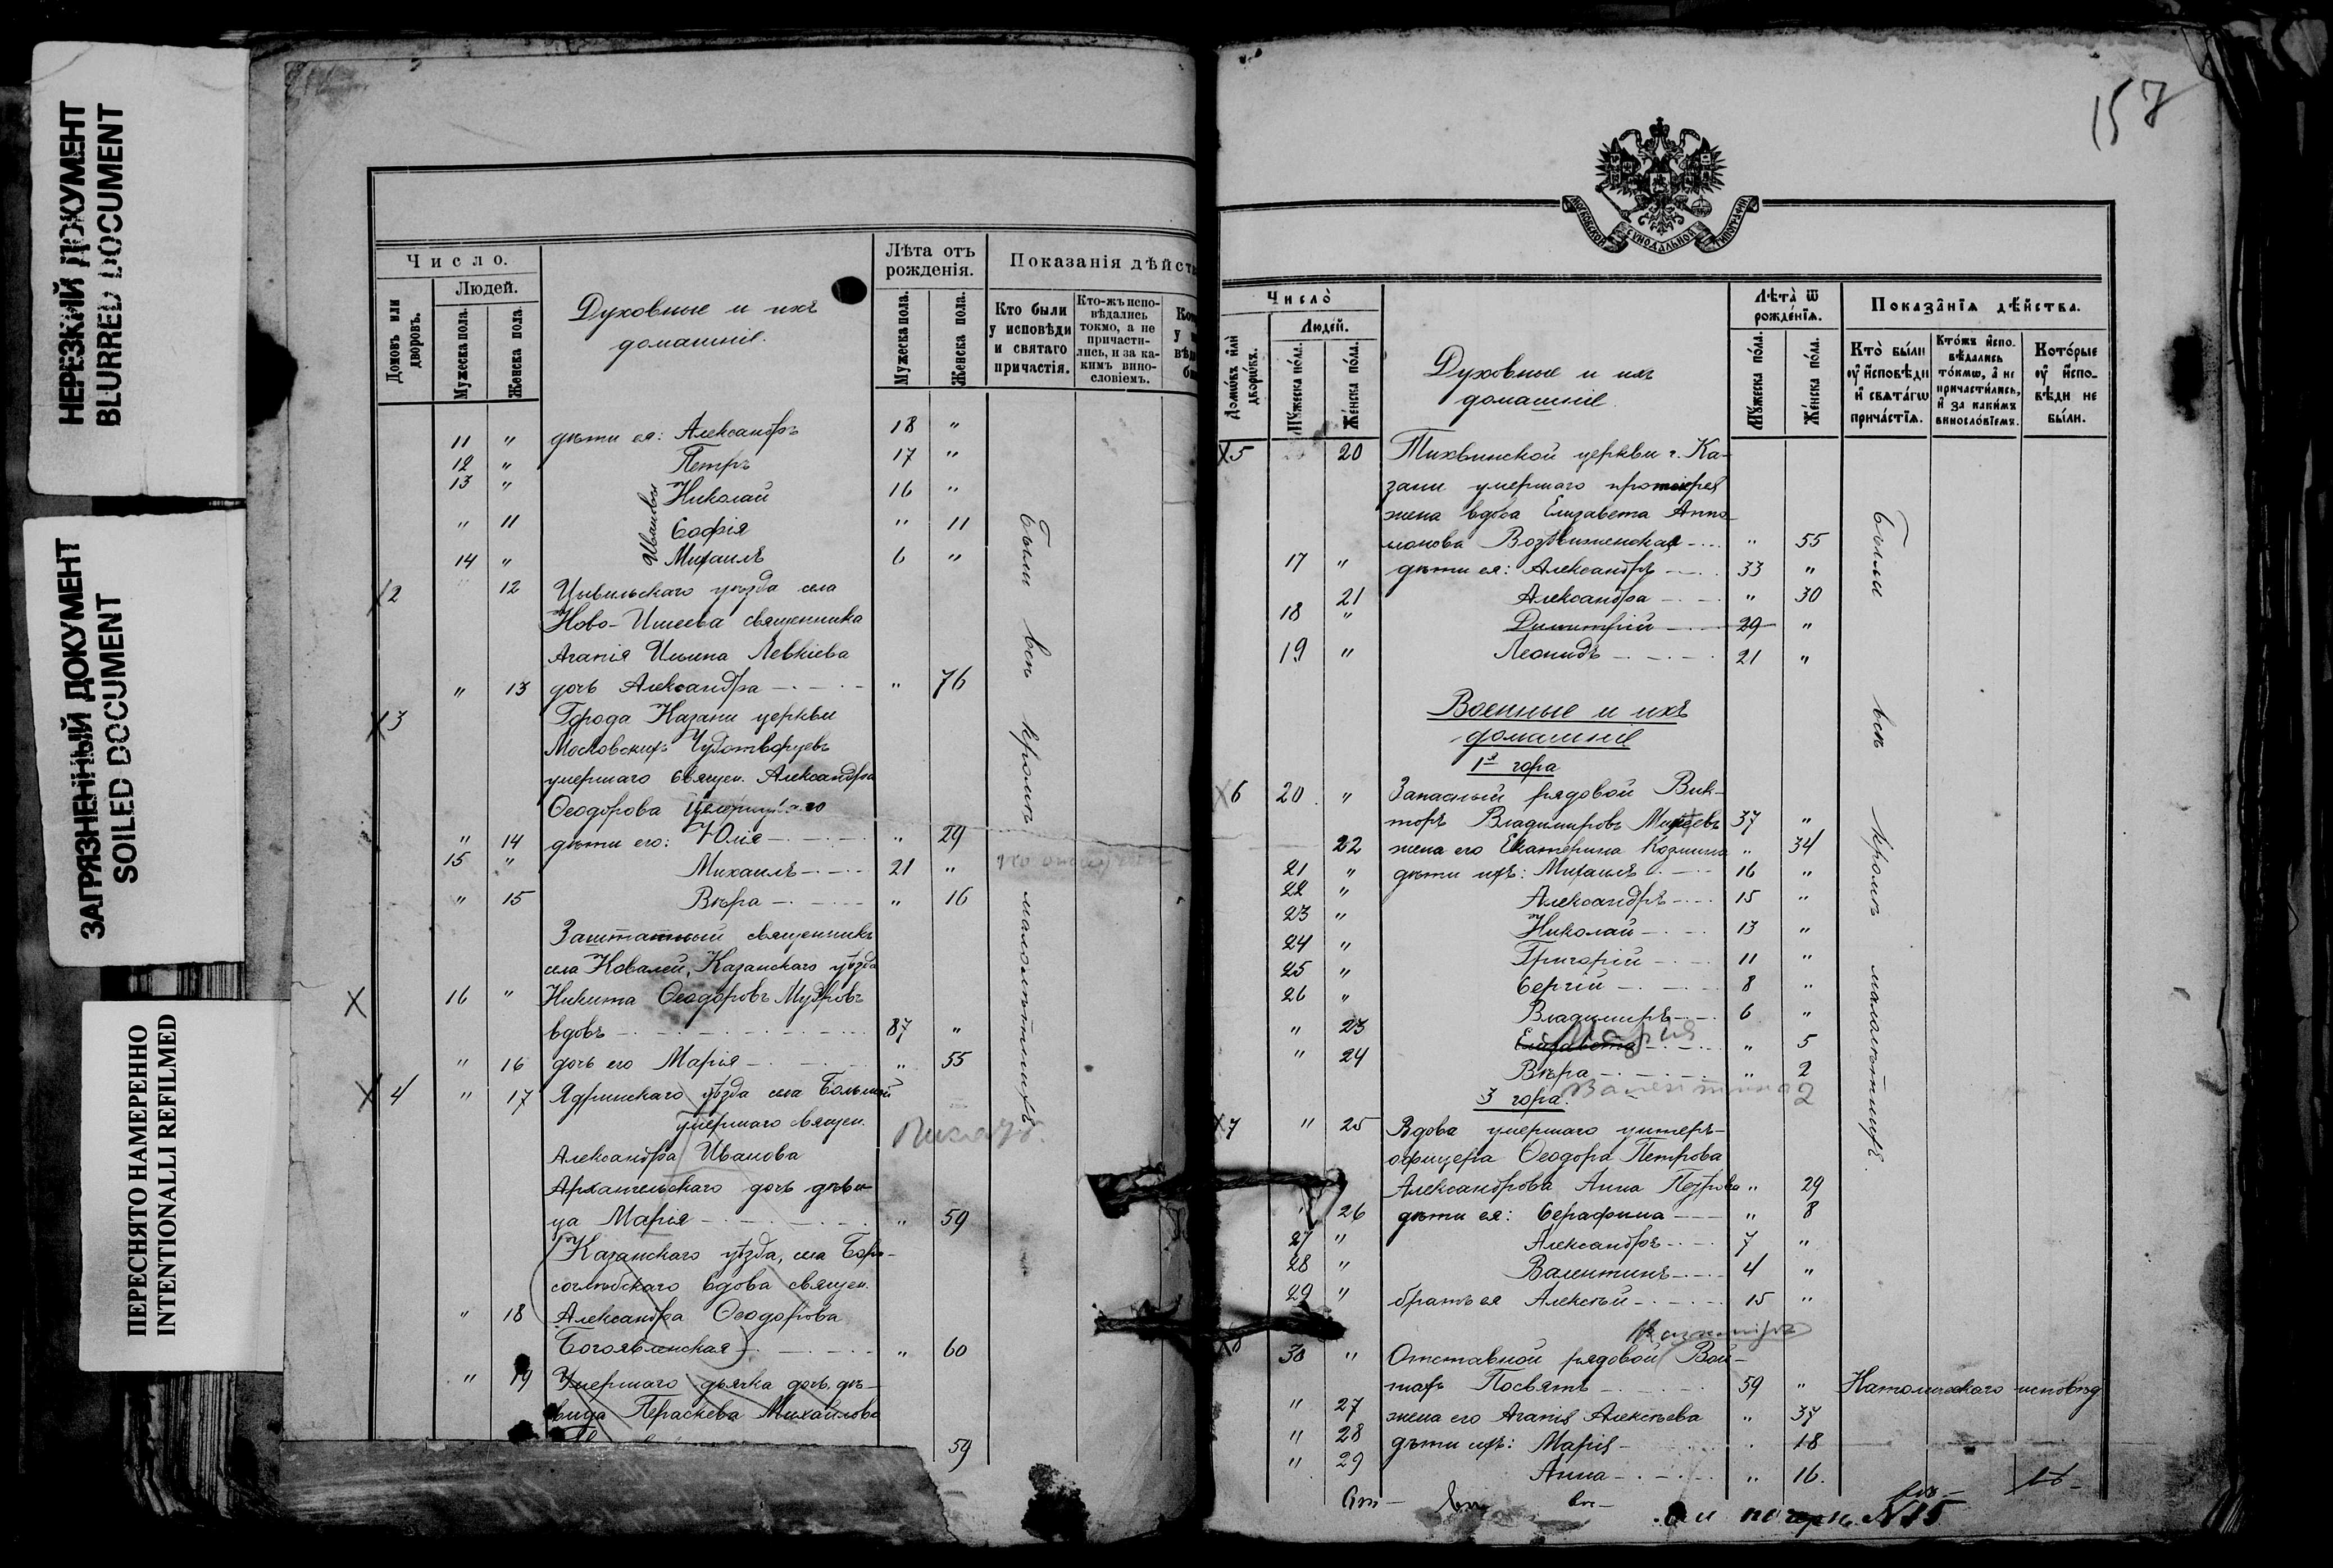 НЕРЕЗКИЙ ДОКУМЕНТ
BLURRED DOCUMENT
ЗАГРЯЗНЕННЫЙ ДОКУМЕНТ
SOILED DOCUMENT
ПЕРЕСНЯТО НАМЕРЕННО
INTENTIONALLI REFILMED
Число.
Людей.
Домовъ или дворовъ.
Мужеска пола.
Женска пола.
Духовные и ихъ
домашніе.
Лѣта отъ
рожденія.
Мужеска пола.
Женска пола.
Показанія дѣйств
Кто были
у исповѣди
и святаго
причастія.
Кто-жъ испо-
вѣдались
токмо, а не
причасти-
лись, и за ка-
кимъ вино-
словіемъ.
11 " дѣти ея: Александръ 18 "
12 " Петръ 17 "
13 " Николай 16 "
Ивановы
" 11 Софія " 11
14 " Михаилъ 6 "
X2 " 12 Цывильскаго уѣзда села
Ново-Ишеева священника
Агапія Ильина Левкіева
" 13 дочь Александра " 76
X3 Города Казани церкви
Московскихъ Чудотворцевъ
умершаго священ. Александра
Ѳеодорова
" 14 дѣти его: Юлія " 29
15 " Михаилъ 21 "
" 15 Вѣра " 16
Заштатный священникъ
села Ковалей, Казанскаго уѣзда
X 16 " Никита Ѳеодоровъ Мудровъ
вдовъ 87 "
" 16 дочь его Марія " 55
X 4 " 17 Ядринскаго уѣзда села Большой
умершаго священ.
Александра Иванова
Архангельскаго дочь дѣви-
ца Марія " 59
Казанскаго уѣзда, села Бори-
соглѣбскаго вдова священ.
" 18 Александра Ѳеодорова
Богоявленская " 60
" 19 Умершаго дьячка дочь, дѣ-
вица Параскева Михайлова
59
Были всѣ кромѣ малолѣтнихъ
157
МОСКОВСКОЙ СѴНОДАЛЬНОЙ ТИПОГРАФІИ
Число̀
Людей.
Домо́въ и҆лѝ дворо́въ.
Мꙋ́жеска по́ла.
Же́нска по́ла.
Духовные и ихъ
домашніе.
Лѣта̀ ѿ
рожде́нїѧ.
Мꙋ́жеска по́ла.
Же́нска по́ла.
Показа̑нїѧ дѣ́йства.
Кто̀ бы́ли
ᲂу҆ и҆сповѣди
и҆ свѧта́гѡ
прича́стїѧ.
Кто́жъ и҆спо-
вѣ́дались
то́кмѡ, а҆ не
причасти́лись,
и҆ за каки́мъ
винословїемъ.
Кото́рые
ᲂу҆ и҆спо-
вѣди не
бы́ли.
X5 20 Тихвинской церкви г. Ка-
зани умершаго протоіерея
жена вдова Елизавета Апол-
лонова Воздвиженская " 55
17 " дѣти ея: Александръ 33 "
21 Александра " 30
18 " Димитрій 29 "
19 " Леонидъ 21 "
Военные и ихъ
домашніе
1я гора
X6 20 " Запасный рядовой Вик-
торъ Владимировъ 37 "
22 жена его Екатерина Козмина " 34
21 " дѣти ихъ: Михаилъ 16 "
22 " Александръ 15 "
23 " Николай 13 "
24 " Григорій 11 "
25 " Сергій 8 "
26 " Владимиръ 6 "
" 23 Елизавета Марія " 5
" 24 Вѣра " 2
3 гора. Валентина 2
X7 " 25 Вдова умершаго унтеръ-
офицера Ѳеодора Петрова
Александрова Анна Петрова " 29
" 26 дѣти ея: Серафима " 8
27 " Александръ 7 "
28 " Валентинъ 4 "
29 " братъ ея Алексѣй 15 "
X8 30 " Отставной рядовой Вой-
техъ Посвятъ 59 " Католическаго исповѣд
" 27 жена его Агапія Алексѣева " 37
" 28 дѣти ихъ: Марія " 18
" 29 Анна " 16.
Были всѣ кромѣ малолѣтнихъ.
№ 15